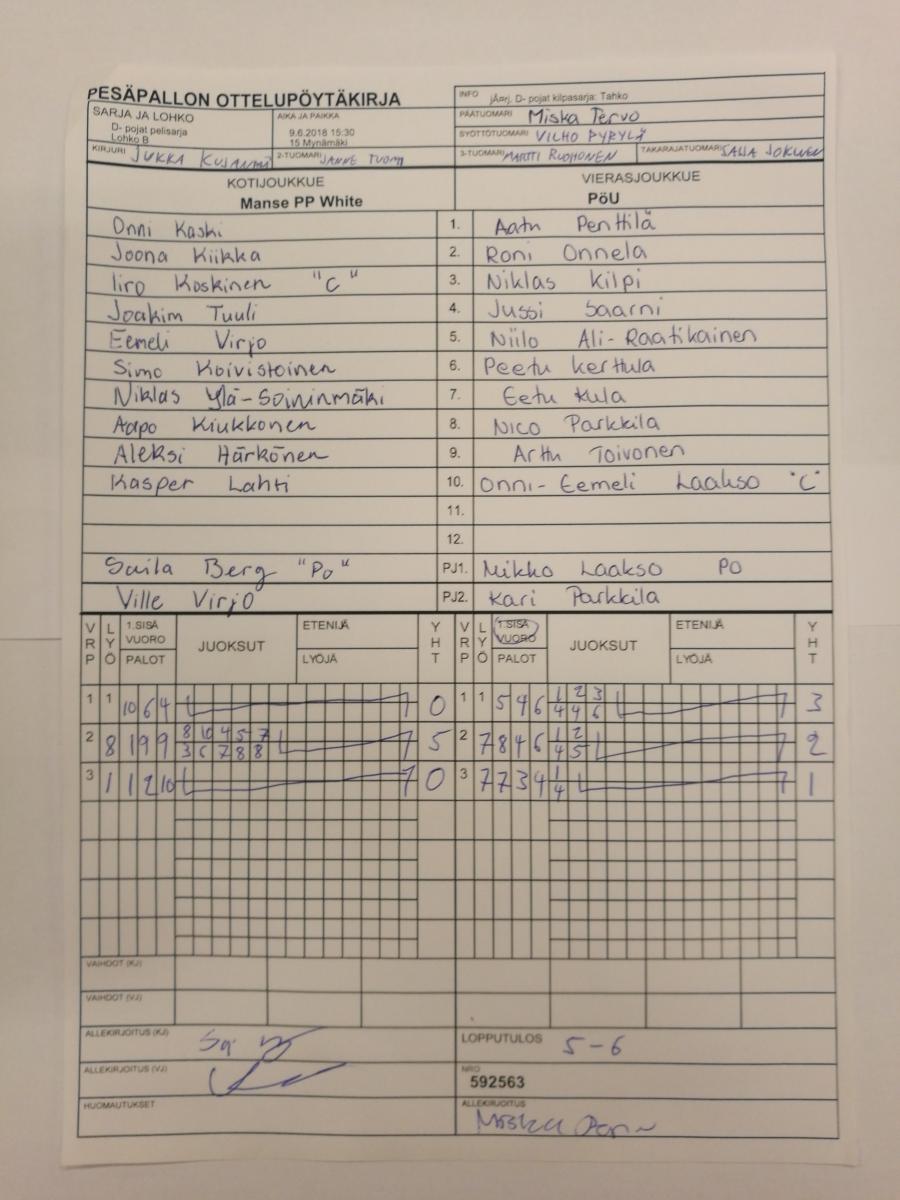 PESÄPALLON OTTELUPÖYTÄKIRJA
INFO jÄ¤rj. D- pojat kilpasarja: Tahko
SARJA JA LOHKO
D- pojat pelisarja
Lohko B
AIKA JA PAIKKA
9.6.2018 15:30
15 Mynämäki
PÄÄTUOMARI Miska Tervo
SYÖTTÖTUOMARI VILHO PYRYLÄ
KIRJURI JUKKA 2-TUOMARI JANNE TUOMI
3-TUOMARI MARTTI RUOHONEN TAKARAJATUOMARI
KOTIJOUKKUE VIERASJOUKKUE
Manse PP White PöU
Onni Kaski 1. Aatu Penttilä
Joona Kiikka 2. Roni Onnela
Iiro Koskinen "C" 3. Niklas Kilpi
Joakim Tuuli 4. Jussi Saarni
Eemeli Virjo 5. Niilo Ali-Raatikainen
Simo Koivistoinen 6. Peetu Kerttula
Niklas Ylä-Soininmäki 7. Eetu Kula
Aapo Kiukkonen 8. Nico Parkkila
Aleksi Härkönen 9. Arttu Toivonen
Kasper Lahti 10. Onni-Eemeli Laakso "C"
11.
12.
Saila Berg "Po" PJ1. Mikko Laakso PO
Ville Virjo PJ2. Kari Parkkila
VRP LYÖ 1.SISÄ VUORO PALOT JUOKSUT ETENIJÄ LYÖJÄ YHT VRP LYÖ 1.SISÄ VUORO PALOT JUOKSUT ETENIJÄ LYÖJÄ YHT
1 1 10 6 4 0 1 1 5 4 6 1 2 3 3
4 4 6
2 8 1 9 9 8 10 4 5 7 5 2 7 8 4 6 1 2 2
3 6 7 8 8 4 5
3 1 1 2 10 0 3 7 7 3 4 1 1
4
VAIHDOT (KJ)
VAIHDOT (VJ)
ALLEKIRJOITUS (KJ) LOPPUTULOS 5-6
ALLEKIRJOITUS (VJ) NRO
592563
HUOMAUTUKSET ALLEKIRJOITUS